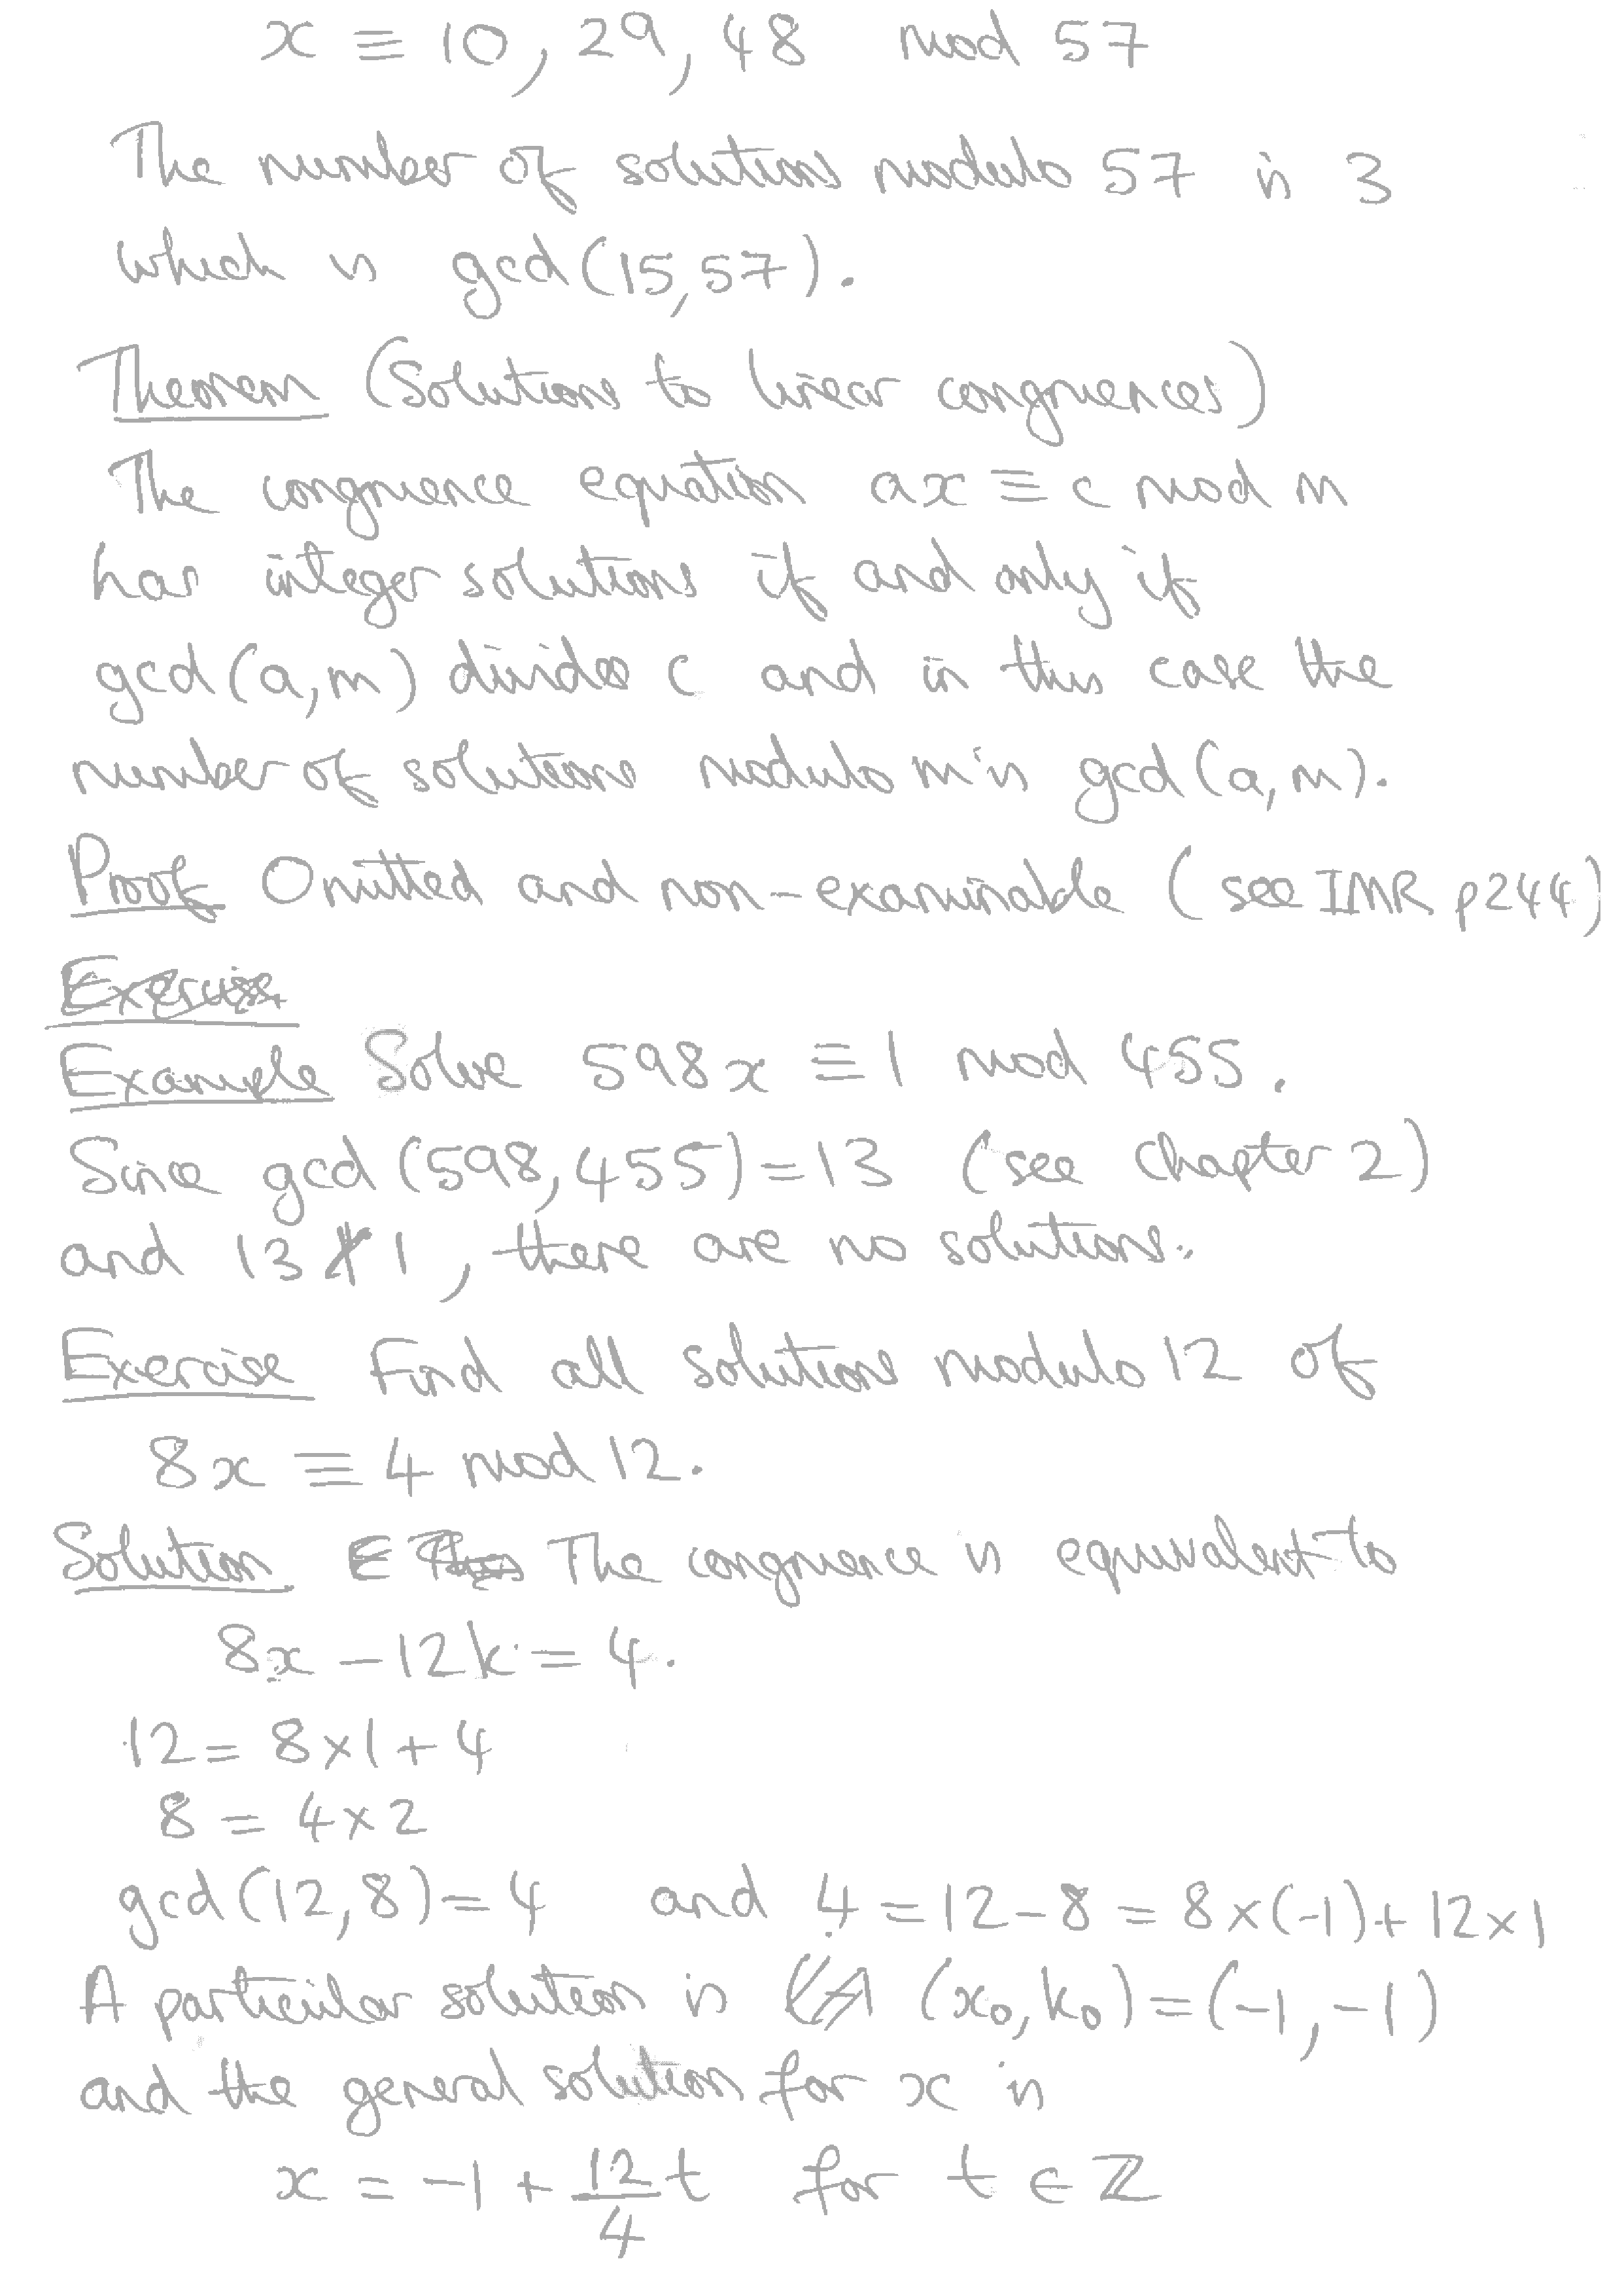 x ≡ 10, 29, 48 mod 57
The number of solutions modulo 57 is 3
which is gcd(15,57).
Theorem (Solutions to linear congruences)
The congruence equation ax ≡ c mod m
has integer solutions if and only if
gcd(a,m) divides c and in this case the
number of solutions modulo m is gcd(a,m).
Proof Omitted and non-examinable (see IMR p244)
Exercise
Example Solve 598x ≡ 1 mod 455.
Since gcd(598,455)=13 (see Chapter 2)
and 13∤1, there are no solutions.
Exercise Find all solutions modulo 12 of
8x ≡ 4 mod 12.
Solution The congruence is equivalent to
8x - 12k = 4.
12 = 8×1+4
8 = 4×2
gcd(12,8)=4 and 4 = 12-8 = 8×(-1)+12×1
A particular solution is (x₀,k₀)=(-1,-1)
and the general solution for x is
x = -1 + 12/4 t for t ∈ ℤ